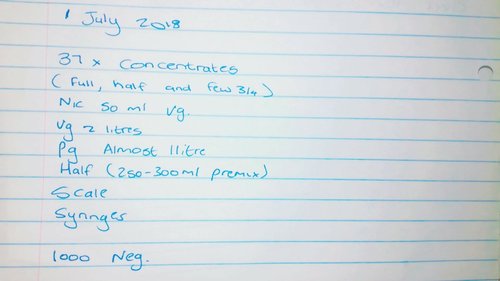 1 July 2018
37 x Concentrates
(Full, half and few 3/4)
Nic 50 ml Vg.
Vg 2 litres
Pg Almost 1litre
Half (250-300ml premix)
Scale
Syringes
1000 Neg.